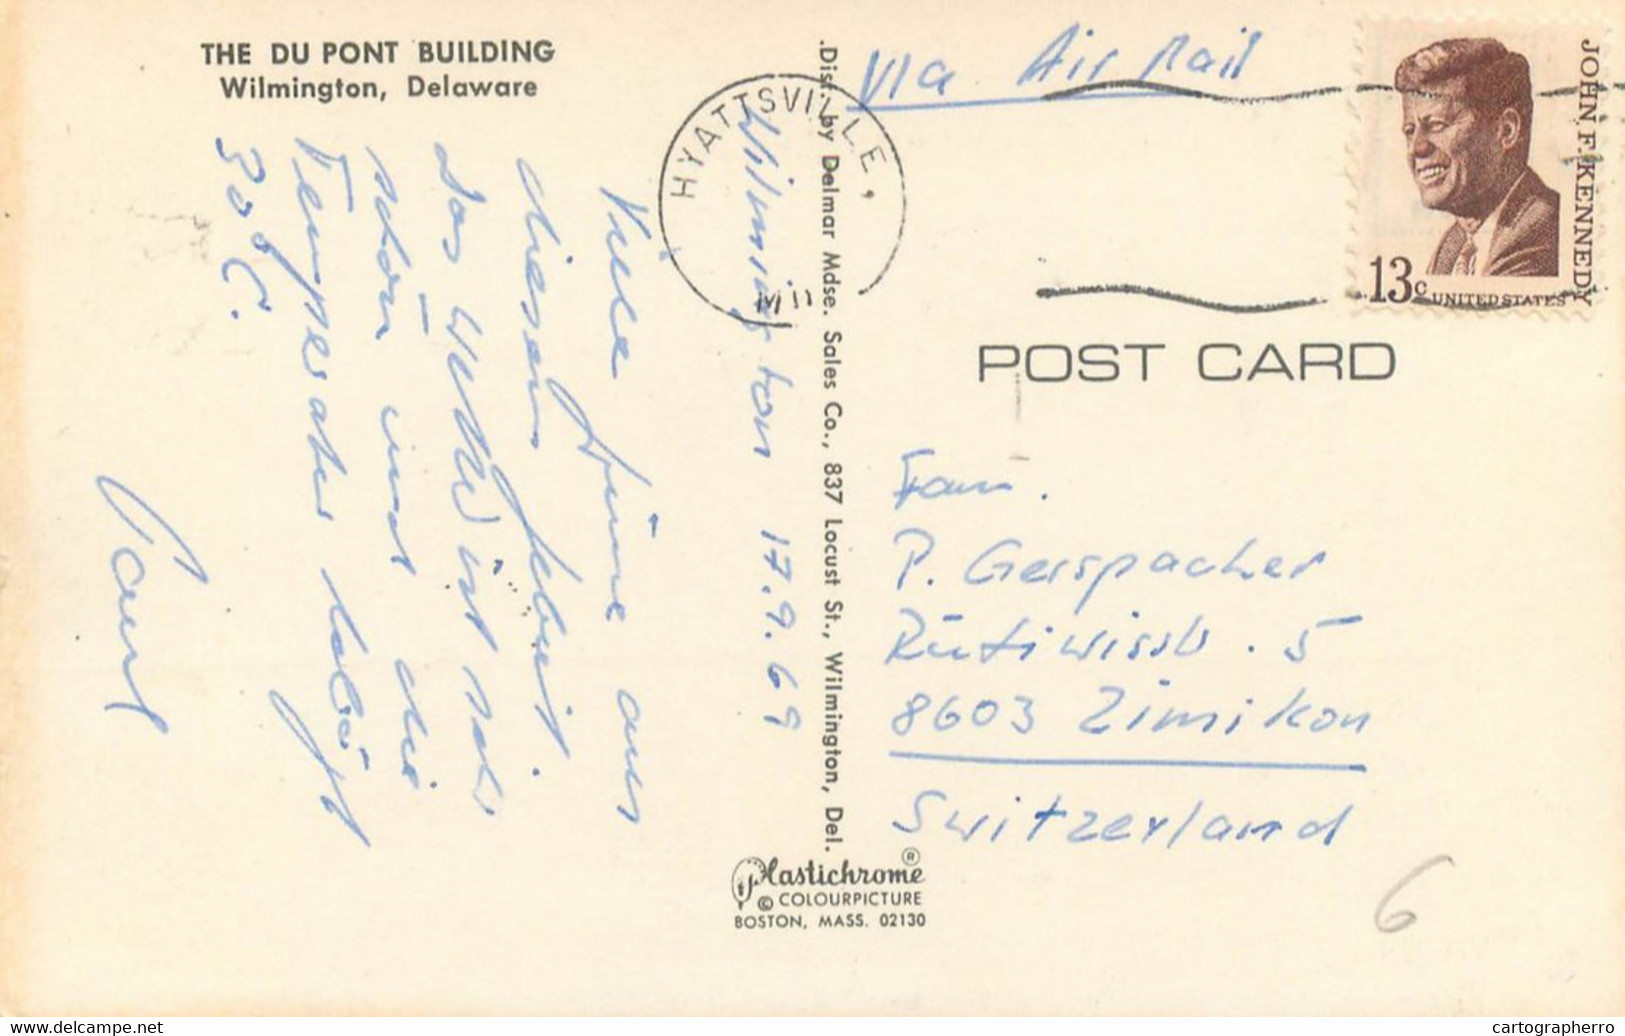 THE DU PONT BUILDING
Wilmington, Delaware
Wilmington 17.9.69
Viele Grüsse aus
diesem Gebiet.
Das Wetter ist sehr
schön und die
Temperatur beträgt
30°C.
Paul
.Dist. by Delmar Mdse. Sales Co., 837 Locust St., Wilmington, Del.
Plastichrome ®
© COLOURPICTURE
BOSTON, MASS. 02130
HYATTSVILLE,
MD
Via Air Mail
JOHN F. KENNEDY
13c UNITED STATES
POST CARD
Fam.
P. Gerspacher
Rütiwisstr. 5
8603 Zimikon
Switzerland
6
www.delcampe.net
cartographerro